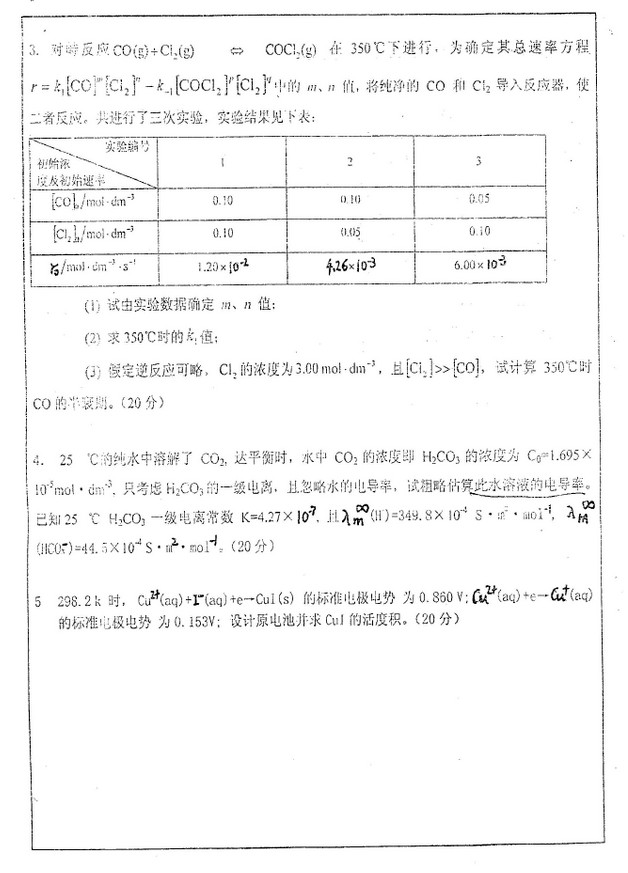 3. 对峙反应 CO(g)+Cl₂(g) ⇔ COCl₂(g) 在 350℃下进行，为确定其总速率方程
r = k₁[CO]ᵐ[Cl₂]ⁿ − k₋₁[COCl₂]ᵖ[Cl₂]^q 中的 m、n 值，将纯净的 CO 和 Cl₂ 导入反应器，使
二者反应。共进行了三次实验，实验结果见下表：
实验编号 1 2 3
初始浓
度及初始速率
[CO]₀/mol·dm⁻³ 0.10 0.10 0.05
[Cl₂]₀/mol·dm⁻³ 0.10 0.05 0.10
r₀/mol·dm⁻³·s⁻¹ 1.20×10⁻² 4.26×10⁻³ 6.00×10⁻³
(1) 试由实验数据确定 m、n 值；
(2) 求 350℃时的 k₁值；
(3) 假定逆反应可略，Cl₂ 的浓度为3.00 mol·dm⁻³，且[Cl₂]>>[CO]，试计算 350℃时
CO 的半衰期。（20 分）
4. 25 ℃的纯水中溶解了 CO₂, 达平衡时，水中 CO₂ 的浓度即 H₂CO₃ 的浓度为 C₀=1.695×
10⁻⁵mol·dm⁻³, 只考虑 H₂CO₃ 的一级电离，且忽略水的电导率，试粗略估算此水溶液的电导率。
已知 25 ℃ H₂CO₃ 一级电离常数 K=4.27×10⁻⁷, 且λm^∞(H⁺)=349.8×10⁻⁴ S·m²·mol⁻¹, λm^∞
(HCO₃⁻)=44.5×10⁻⁴ S·m²·mol⁻¹。（20 分）
5 298.2 k 时，Cu²⁺(aq)+I⁻(aq)+e→CuI(s) 的标准电极电势 为 0.860 V; Cu²⁺(aq)+e→Cu⁺(aq)
的标准电极电势 为 0.153V；设计原电池并求 CuI 的活度积。（20 分）